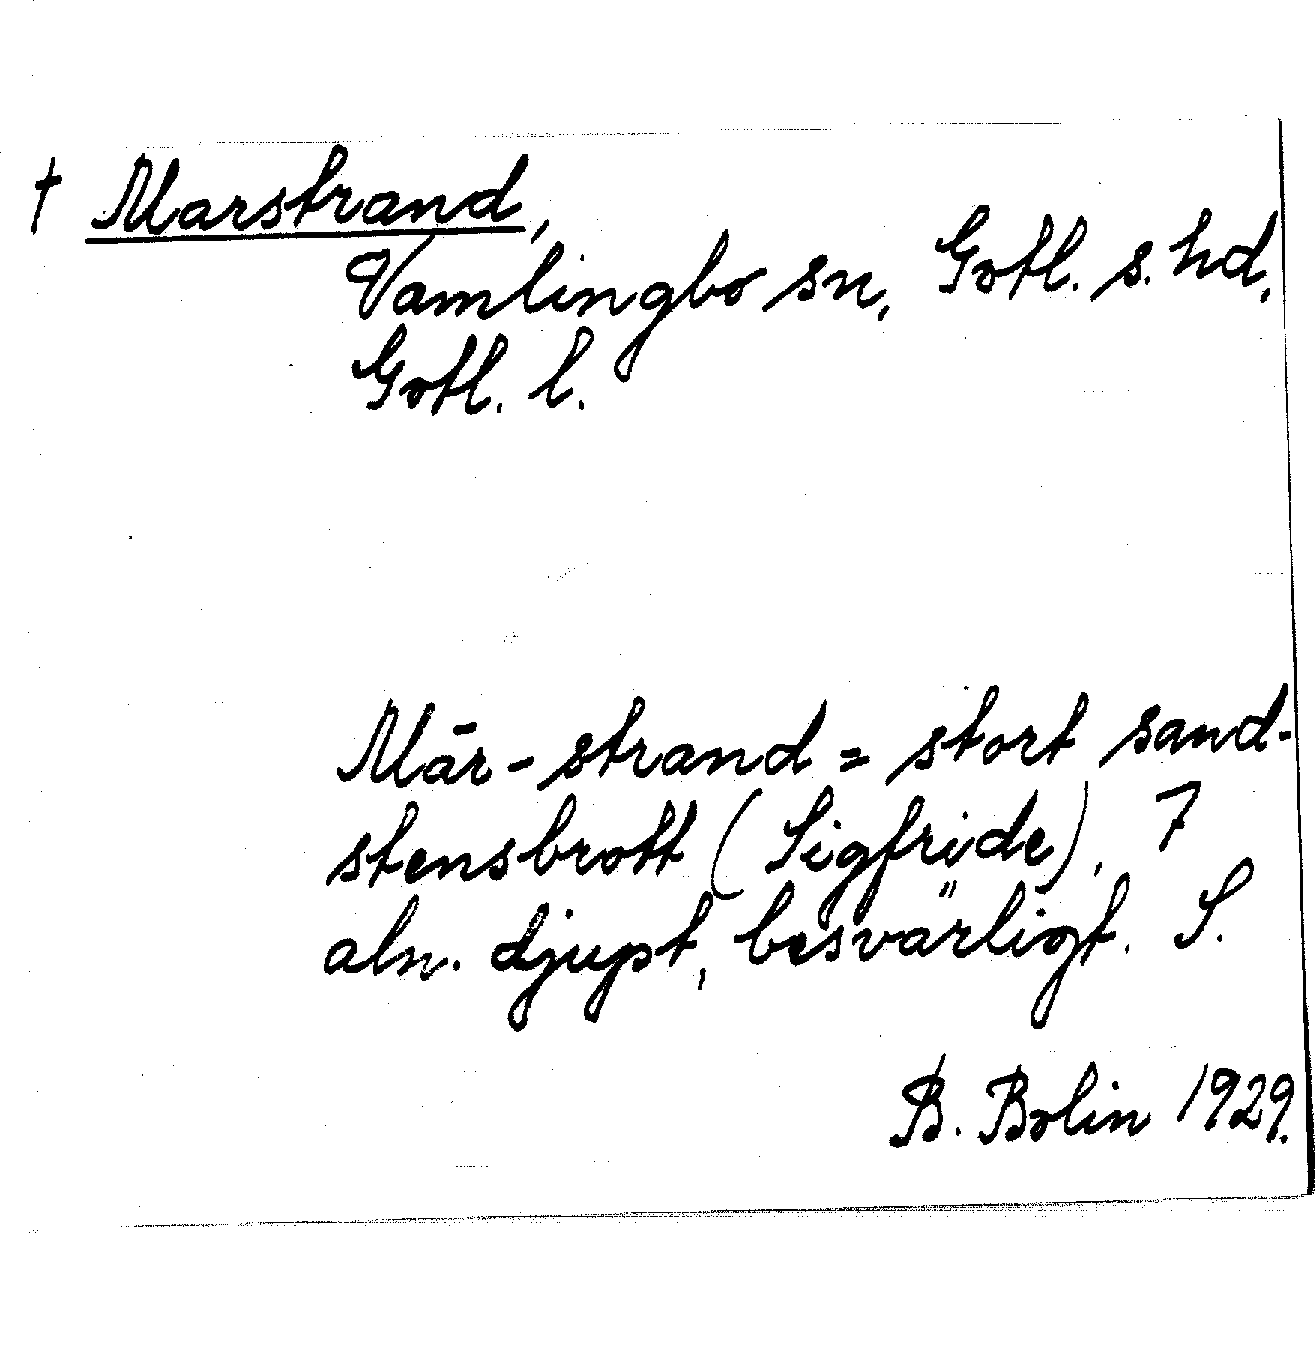 † Marstrand,
Vamlingbo sn, Gotl. s. hd,
Gotl. l.
Mār-strand = stort sand-
stensbrott (Sigfride), 7
aln. djupt, besvärligt. S.
B. Bolin 1929.